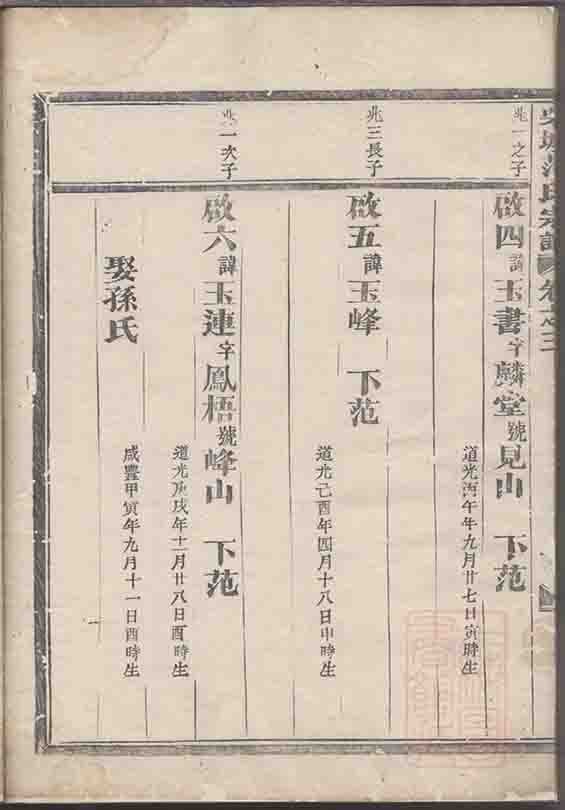 城范氏宗譜 卷之三
兆一之子
啟四諱玉書字麟堂號見山 下范
道光丙午年九月廿七日寅時生
兆三長子
啟五諱玉峰 下范
道光己酉年四月十八日申時生
兆一次子
啟六諱玉連字鳳梧號峰山 下范
道光庚戌年十二月廿八日酉時生
娶孫氏
咸豐甲寅年九月十一日酉時生